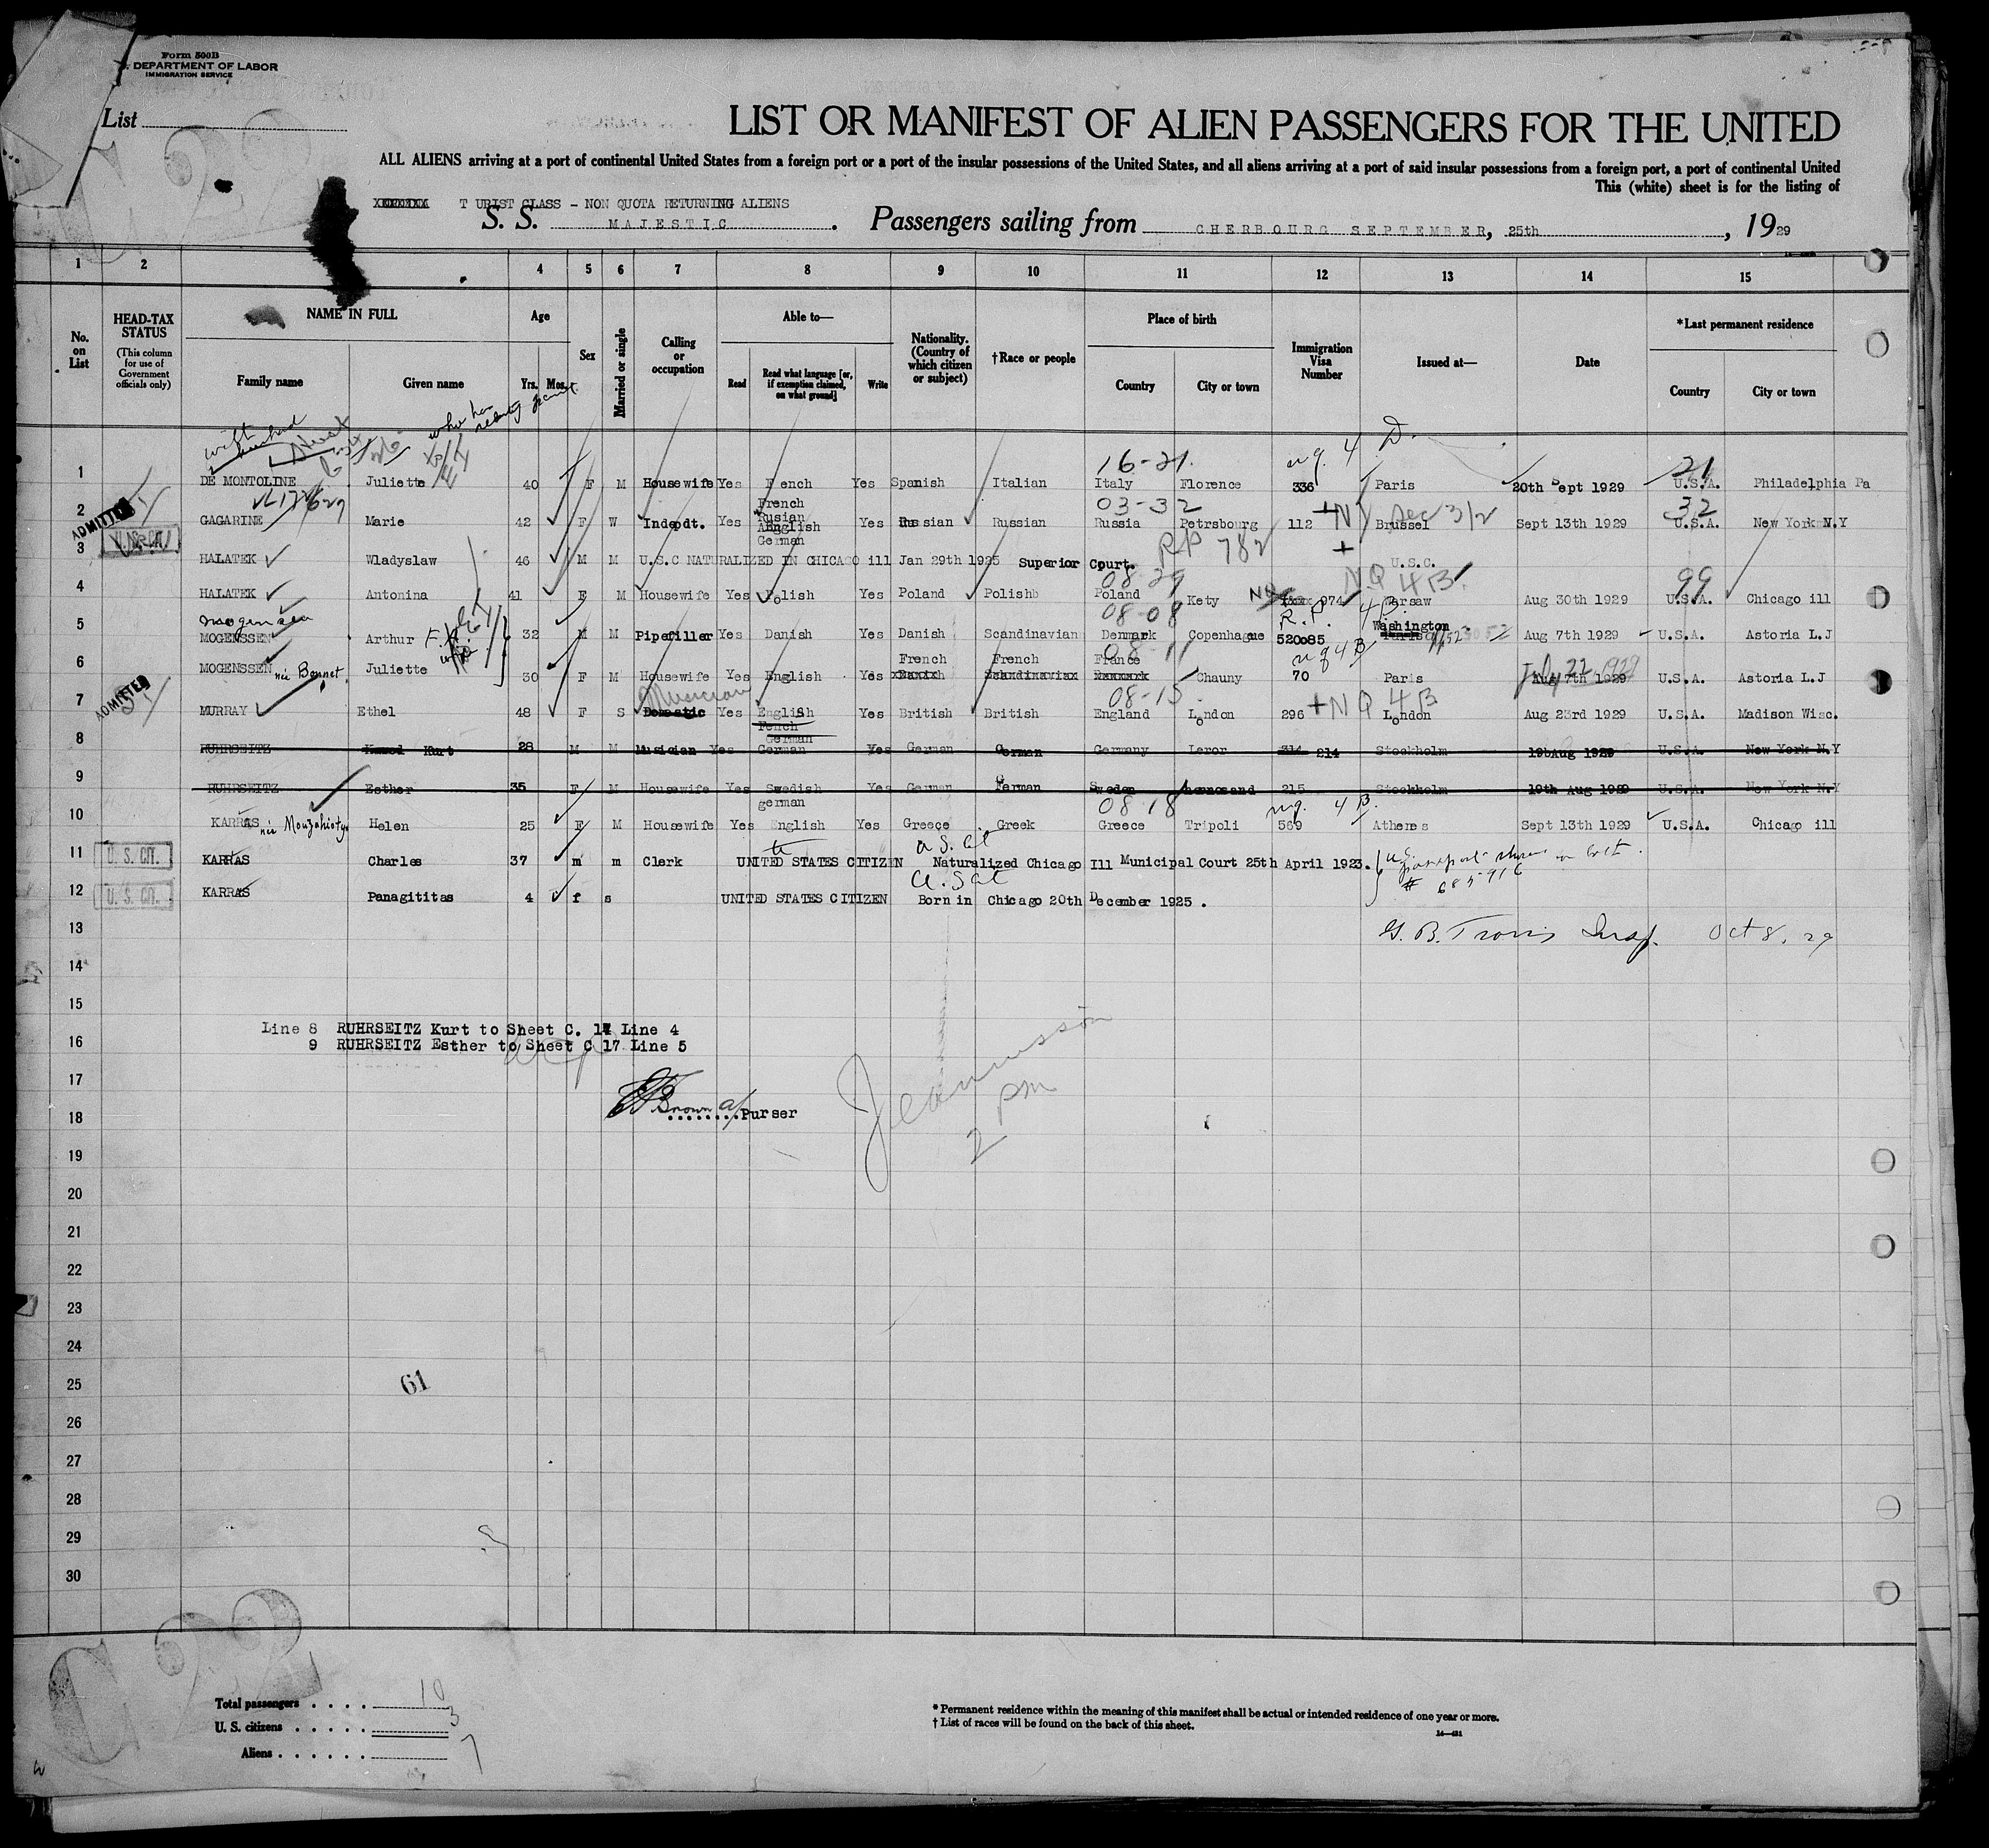 Form 500B
DEPARTMENT OF LABOR
IMMIGRATION SERVICE
List
LIST OR MANIFEST OF ALIEN PASSENGERS FOR THE UNITED
ALL ALIENS arriving at a port of continental United States from a foreign port or a port of the insular possessions of the United States, and all aliens arriving at a port of said insular possessions from a foreign port, a port of continental United
This (white) sheet is for the listing of
T URIST CLASS - NON QUOTA RETURNING ALIENS
S. S. MAJESTIC. Passengers sailing from CHERBOURG SEPTEMBER, 25th, 1929
1 2 4 5 6 7 8 9 10 11 12 13 14 15
No. on List
HEAD-TAX STATUS (This column for use of Government officials only)
NAME IN FULL Family name Given name
Age Yrs. Mos.
Sex
Married or single
Calling or occupation
Able to— Read Read what language [or, if exemption claimed, on what ground] Write
Nationality. (Country of which citizen or subject)
†Race or people
Place of birth Country City or town
Immigration Visa Number
Issued at—
Date
*Last permanent residence Country City or town
who has
16-21. 4 D. 21
1 DE MONTOLINE Juliette 40 F M Housewife Yes French Yes Spanish Italian Italy Florence 336 Paris 20th Sept 1929 U.S.A. Philadelphia Pa
03-32 32
ADMITTED
2 GAGARINE Marie 42 F W Indepdt. Yes French Rusian English German Yes Russian Russian Russia Petrsbourg 112 Brussel Sec 3/2 Sept 13th 1929 U.S.A. New York N.Y
RP 782
3 HALATEK Wladyslaw 46 M M U.S.C NATURALIZED IN CHICAGO ill Jan 29th 1925 Superior Court. U.S.C.
08-29 N.Q 4B 99
4 HALATEK Antonina 41 F M Housewife Yes Polish Yes Poland Polishb Poland Kety NQ 974 Warsaw Aug 30th 1929 U.S.A. Chicago ill
mogensen 08-08 R.P. 4B.
5 MOGENSSEN Arthur 32 M M Pipefiller Yes Danish Yes Danish Scandinavian Denmark Copenhague 520085 Washington Aug 7th 1929 U.S.A. Astoria L.J
08-11 nq4B
6 MOGENSSEN née Bonnet. Juliette 30 F M Housewife Yes English Yes French French France Chauny 70 Paris July 22 1929 Aug 7th 1929 U.S.A. Astoria L.J
ADMITTED
Musician 08-15 +NQ 4B
7 MURRAY Ethel 48 F S Domestic Yes English French German Yes British British England London 296 London Aug 23rd 1929 U.S.A. Madison Wisc.
8 RUHRSEITZ Kurt 28 M M Musician Yes German Yes German German Germany Leror 214 Stockholm 19th Aug 1929 U.S.A. New York N.Y
9 RUHRSEITZ Esther 35 F M Housewife Yes Swedish german Yes German German Sweden hernosand 215 Stockholm 19th Aug 1929 U.S.A. New York N.Y
08 18 nq. 4 B.
10 KARRAS née Helen 25 F M Housewife Yes English Yes Greece Greek Greece Tripoli 569 Athenes Sept 13th 1929 U.S.A. Chicago ill
U.S. Cit
11 U. S. CIT. KARRAS Charles 37 m m Clerk UNITED STATES CITIZEN Naturalized Chicago Ill Municipal Court 25th April 1923.
U.S Cit # 685916
12 U. S. CIT. KARRAS Panagititas 4 f s UNITED STATES CITIZEN Born in Chicago 20th December 1925 .
13 G. B. Travis Insp. Oct 8, 29
14
15
Line 8 RUHRSEITZ Kurt to Sheet C. 17 Line 4
16 9 RUHRSEITZ Esther to Sheet C 17 Line 5
17
Brown
18 Purser
2 pm
19
20
21
22
23
24
25 61
26
27
28
29
30
C 22
Total passengers . . . . 10
U. S. citizens . . . . . 3
Aliens . . . . . . 7
* Permanent residence within the meaning of this manifest shall be actual or intended residence of one year or more.
† List of races will be found on the back of this sheet.